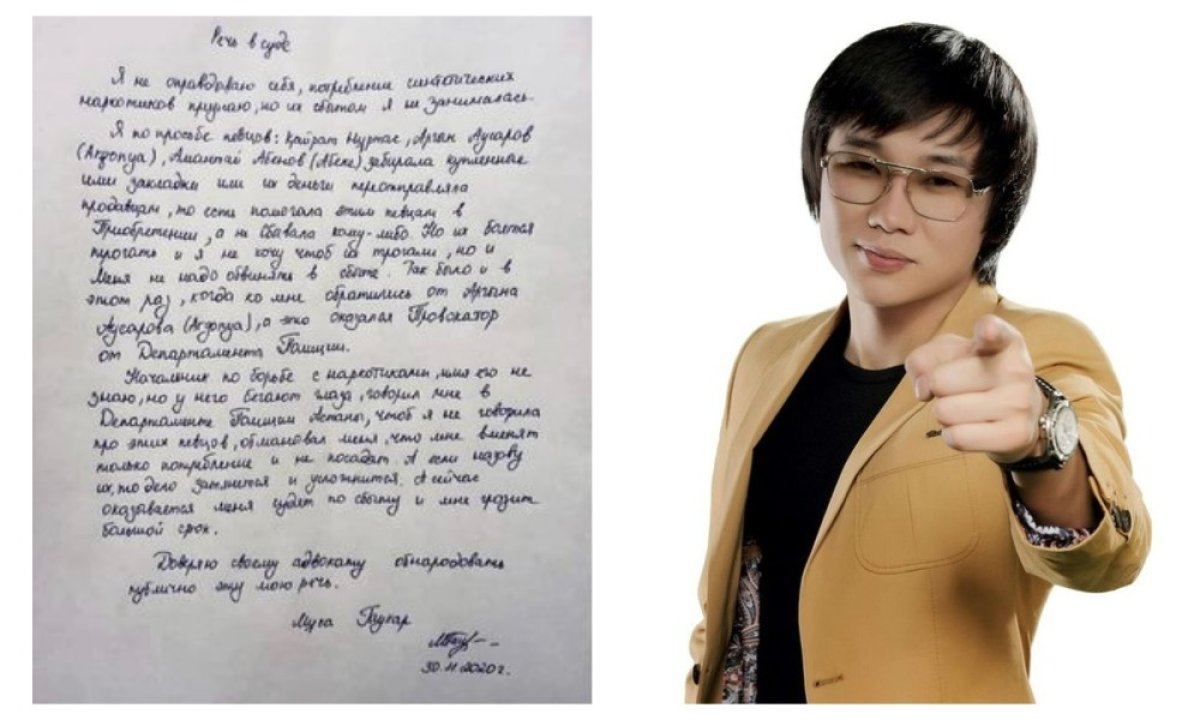 Речь в суде
Я не оправдоваю себя, потребление синтотических
наркотиков признаю, но их сбытом я не занималась.
Я по просьбе певцов: Қайрат Нұртас, Арғын Аусаров
(Aгдопуа), Амантай Абенов (Абеке) забирала купленные
ими закладки или их деньги переотправляла
продавцам, то есть помогала этим певцам в
Приобретении, а не сбывала кому-либо. Но их боятся
трогать и я не хочу чтоб их трогали, но и
Меня не надо обвинять в сбыте. Так было и в
этот раз, когда ко мне обратились от Арғына
Аусарова (Aгдопуа), а это оказался Провокатор
от Департамента Полиции.
Начальник по борьбе с наркотиками, имя его не
знаю, но у него бегают глаза, говорил мне в
Департаменте Полиции Астаны, чтоб я не говорила
про этих певцов, обмановал меня, что мне вменят
только потребление и не посадят. А если назову
их, то дело затянется и усложнится. А сейчас
оказывается меня судят по сбыту и мне грозит
большой срок.
Доверяю своему адвокату обнародовать
публично эту мою речь.
Муса Гаухар
30.11.2020г.